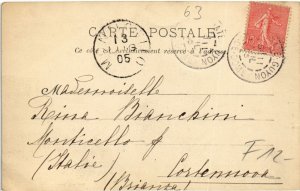 63
CARTE POSTALE
Ce côté est exclusivement réservé à l'adresse
13
05
Mademoiselle
Rina Bianchini
Monticello p
(Italie) Cortennova
(Brianza)
F12-